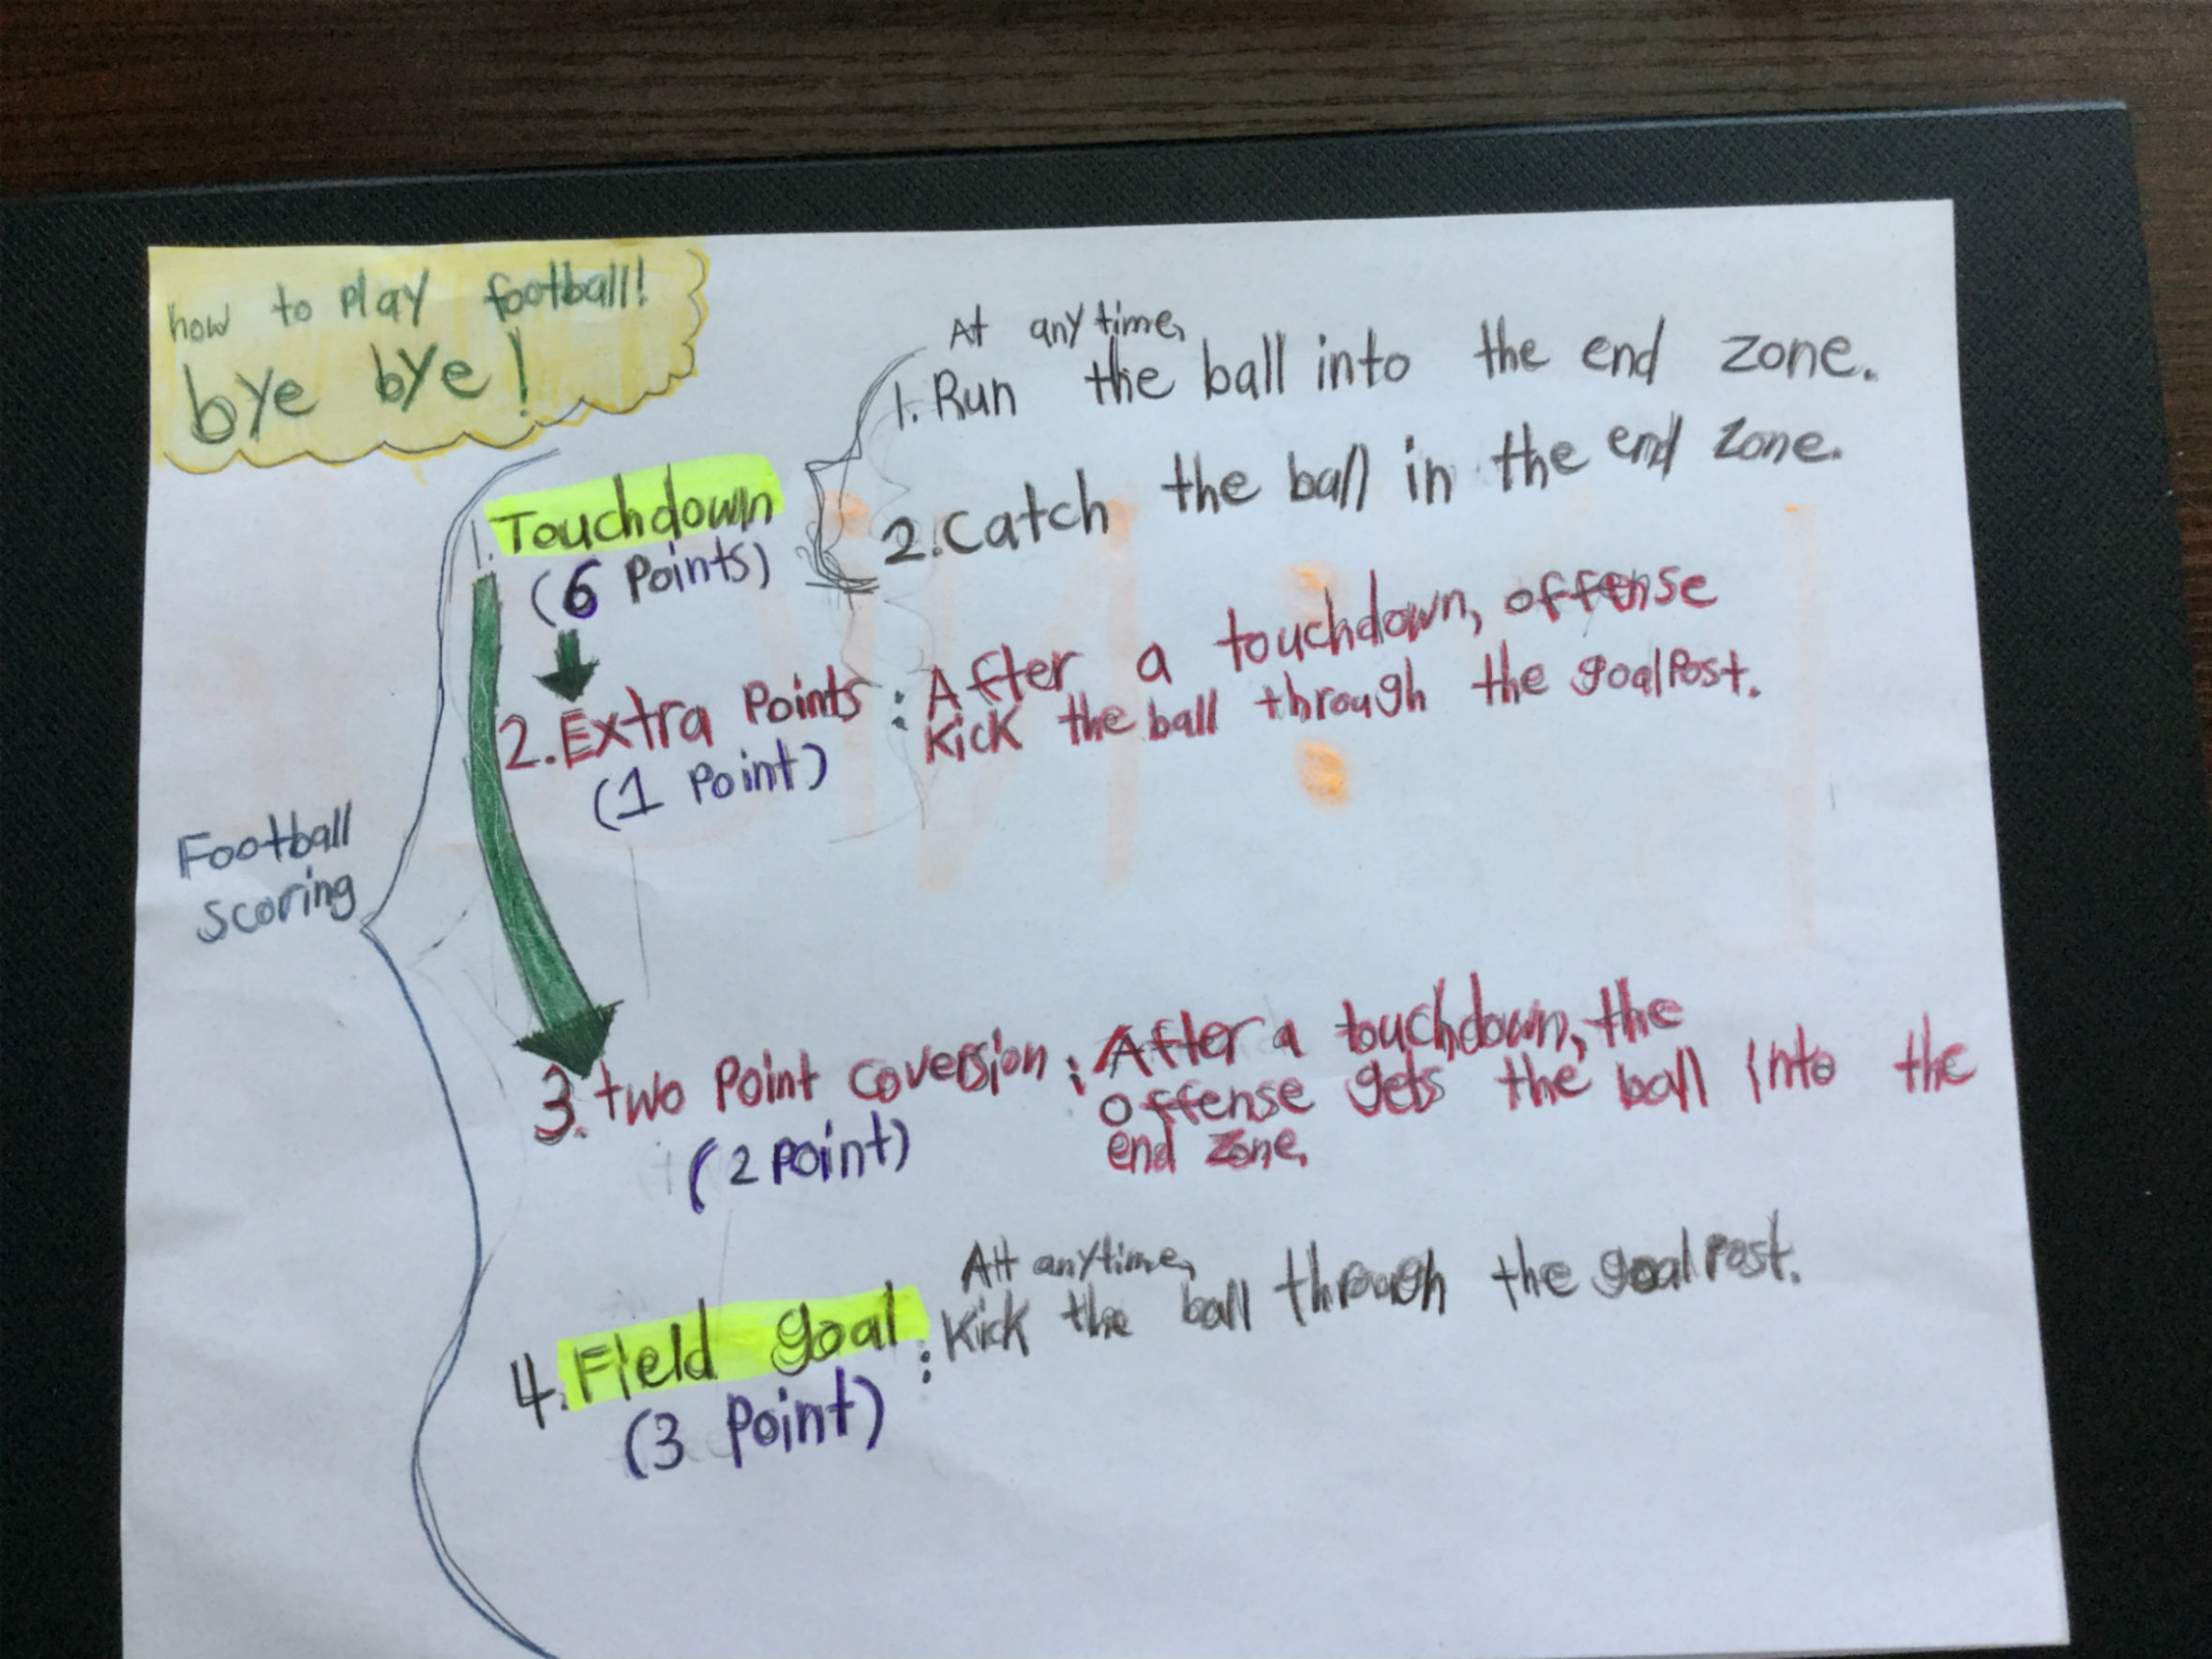 how to play football!
bye bye!
Football
scoring
1. Touchdown
(6 Points)
At any time,
1. Run the ball into the end zone.
2. Catch the ball in the end zone.
2. Extra Points : After a touchdown, offense
kick the ball through the goalPost.
(1 Point)
3. two Point coversion : After a touchdown, the
offense gets the ball into the
end zone.
(2 Point)
4. Field goal :
At anytime,
Kick the ball through the goalPost.
(3 Point)